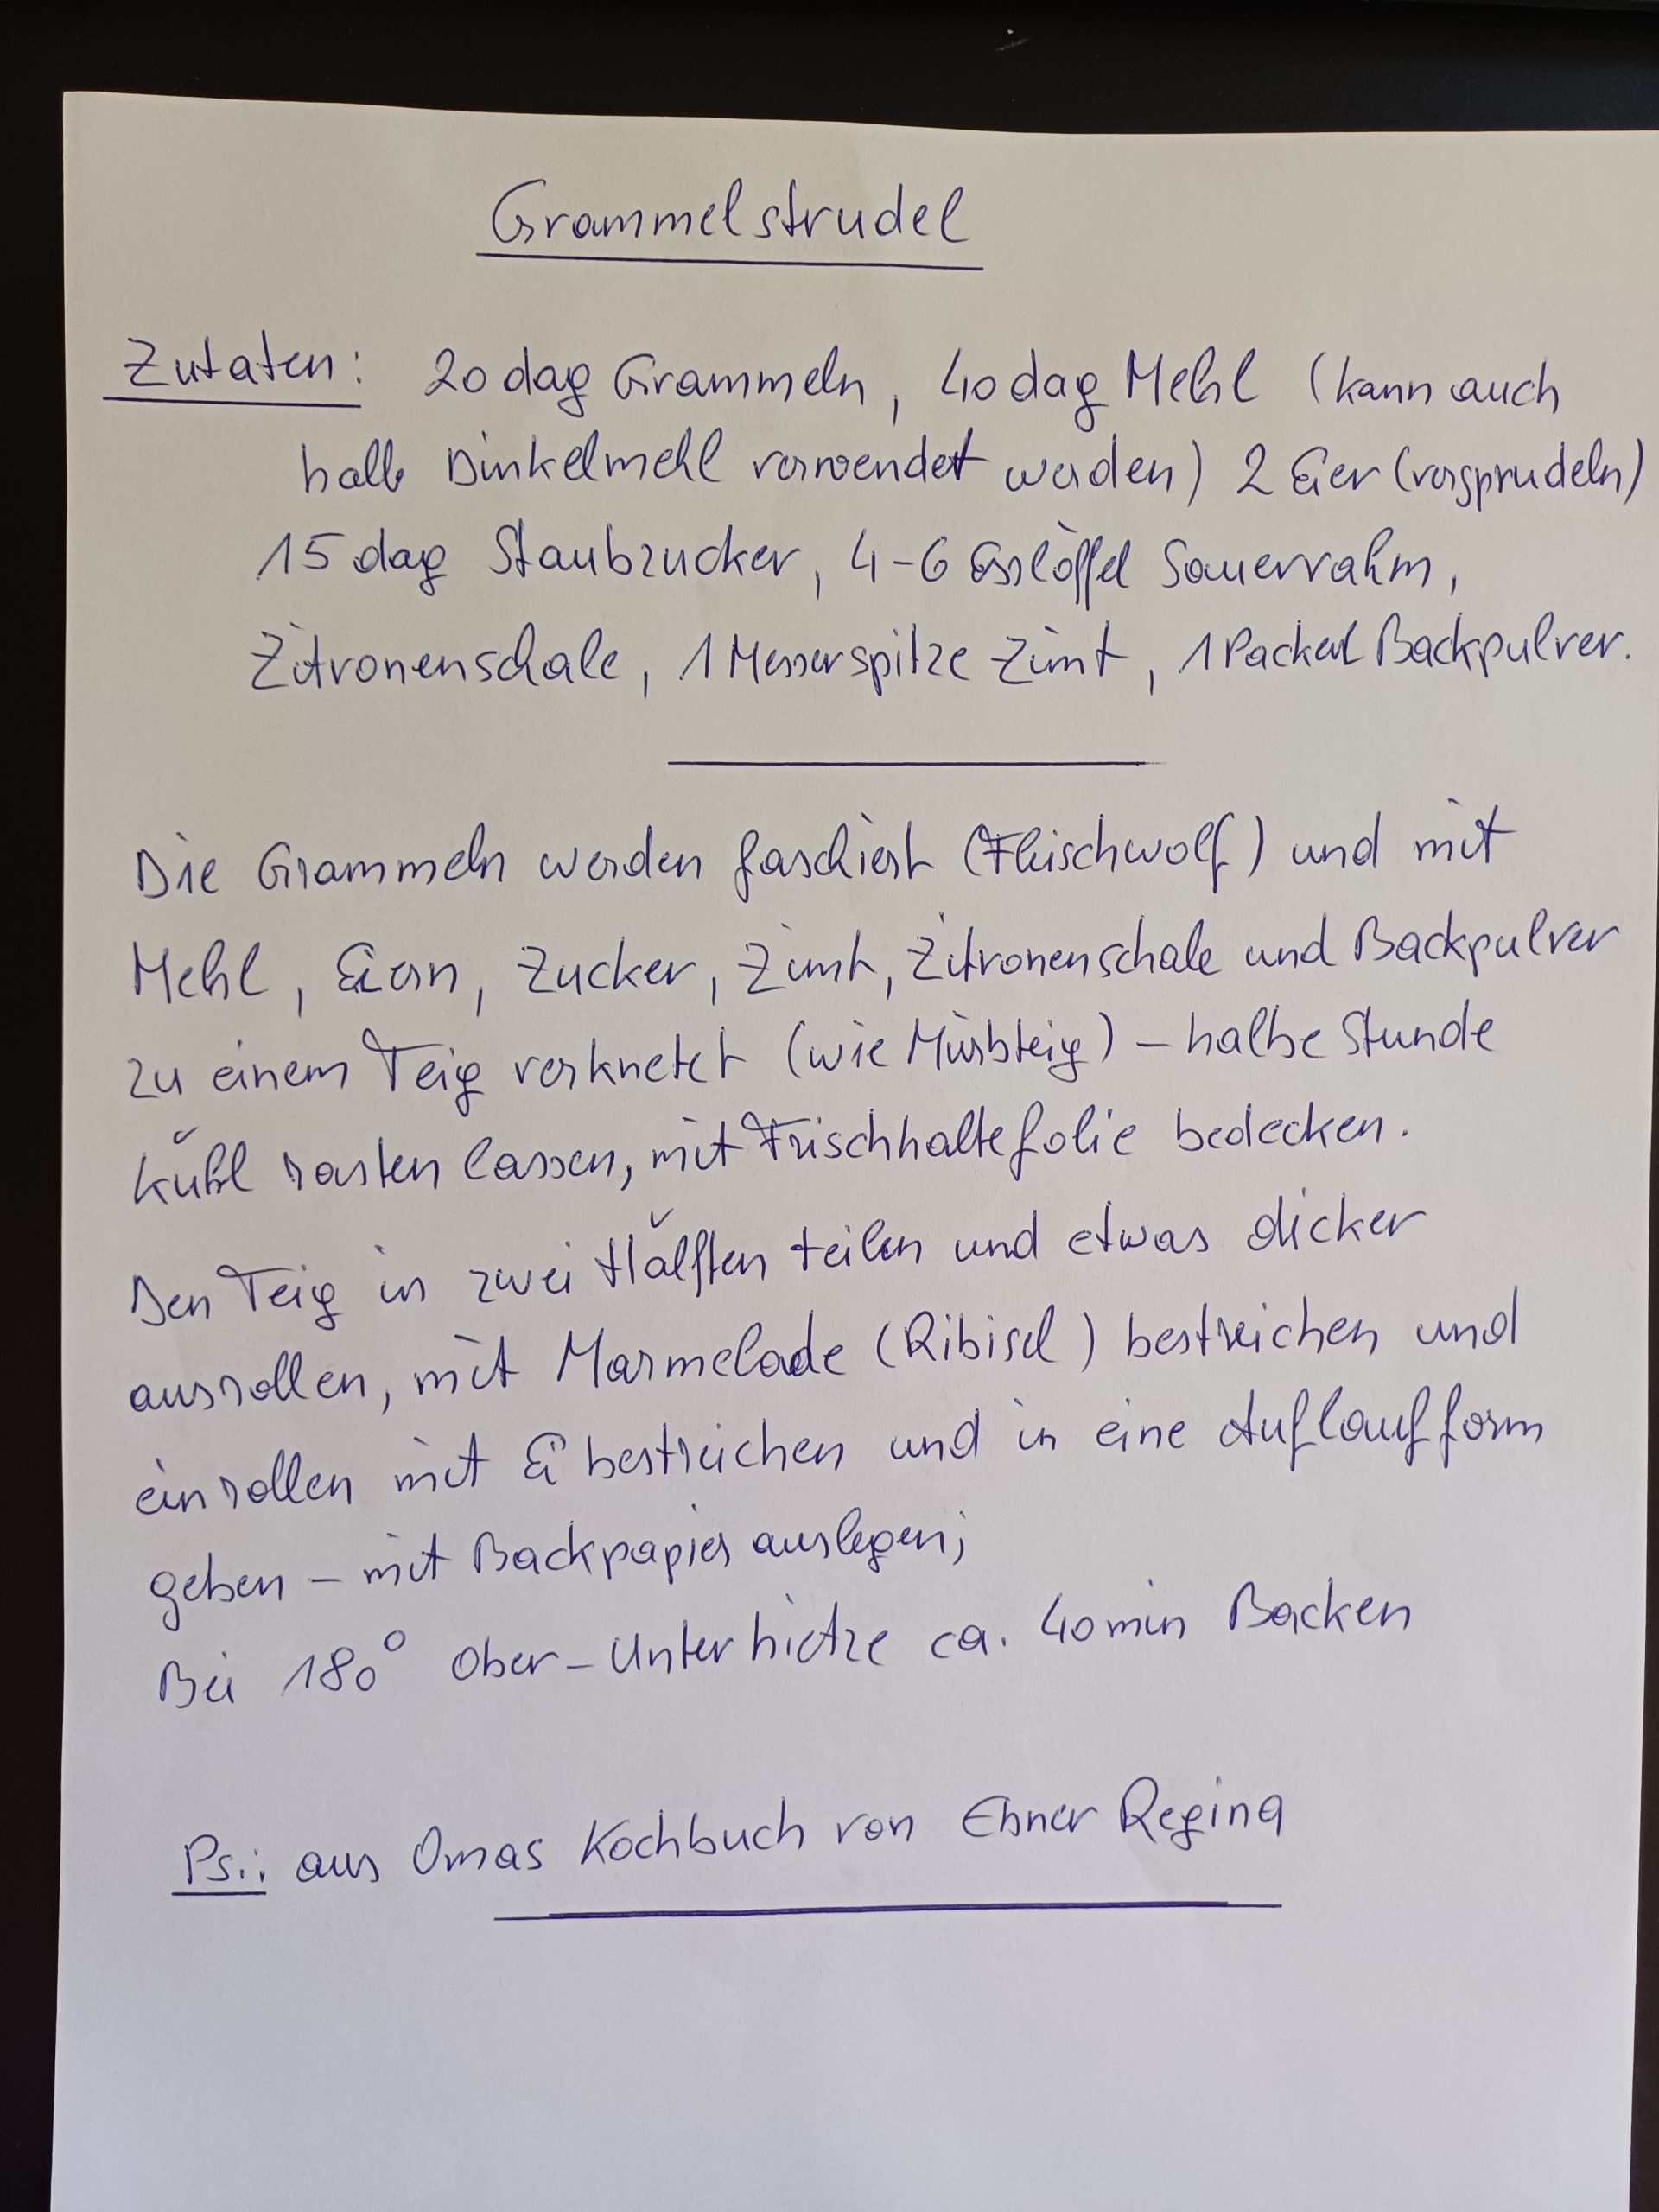 Grammelstrudel
Zutaten: 20 dag Grammeln, 40 dag Mehl (kann auch
halb Dinkelmehl verwendet werden) 2 Eier (versprudeln)
15 dag Staubzucker, 4-6 Esslöffel Sauerrahm,
Zitronenschale, 1 Messerspitze Zimt, 1 Packerl Backpulver.
Die Grammeln werden faschiert (Fleischwolf) und mit
Mehl, Eiern, Zucker, Zimt, Zitronenschale und Backpulver
zu einem Teig verknetet (wie Mürbteig) - halbe Stunde
kühl rasten lassen, mit Frischhaltefolie bedecken.
Den Teig in zwei Hälften teilen und etwas dicker
ausrollen, mit Marmelade (Ribisel) bestreichen und
einrollen mit Ei bestreichen und in eine Auflaufform
geben - mit Backpapier auslegen;
Bei 180° Ober-Unterhietze ca. 40 min Backen
Ps.: aus Omas Kochbuch von Ebner Regina